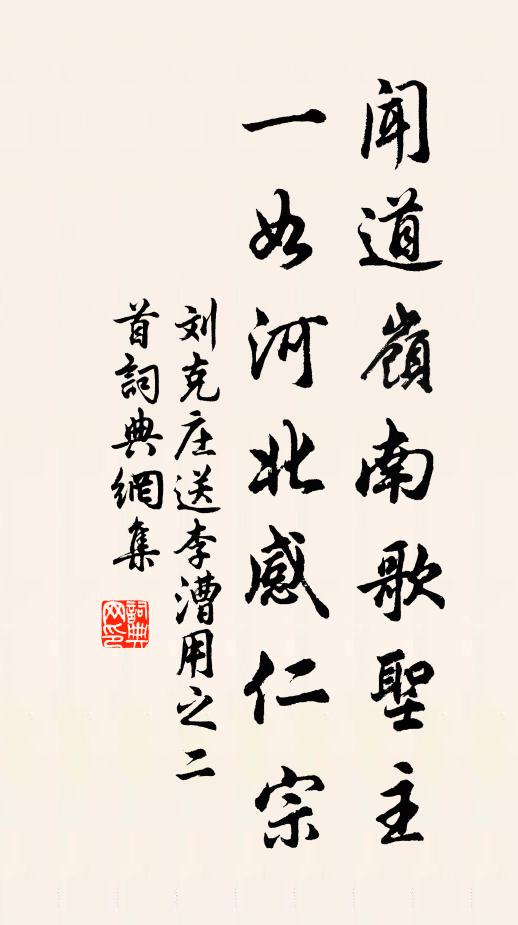 闻道嶺南歌聖主
一如河北感仁宗
刘克庄送李漕用之二
首詞典網集
詞典
网印